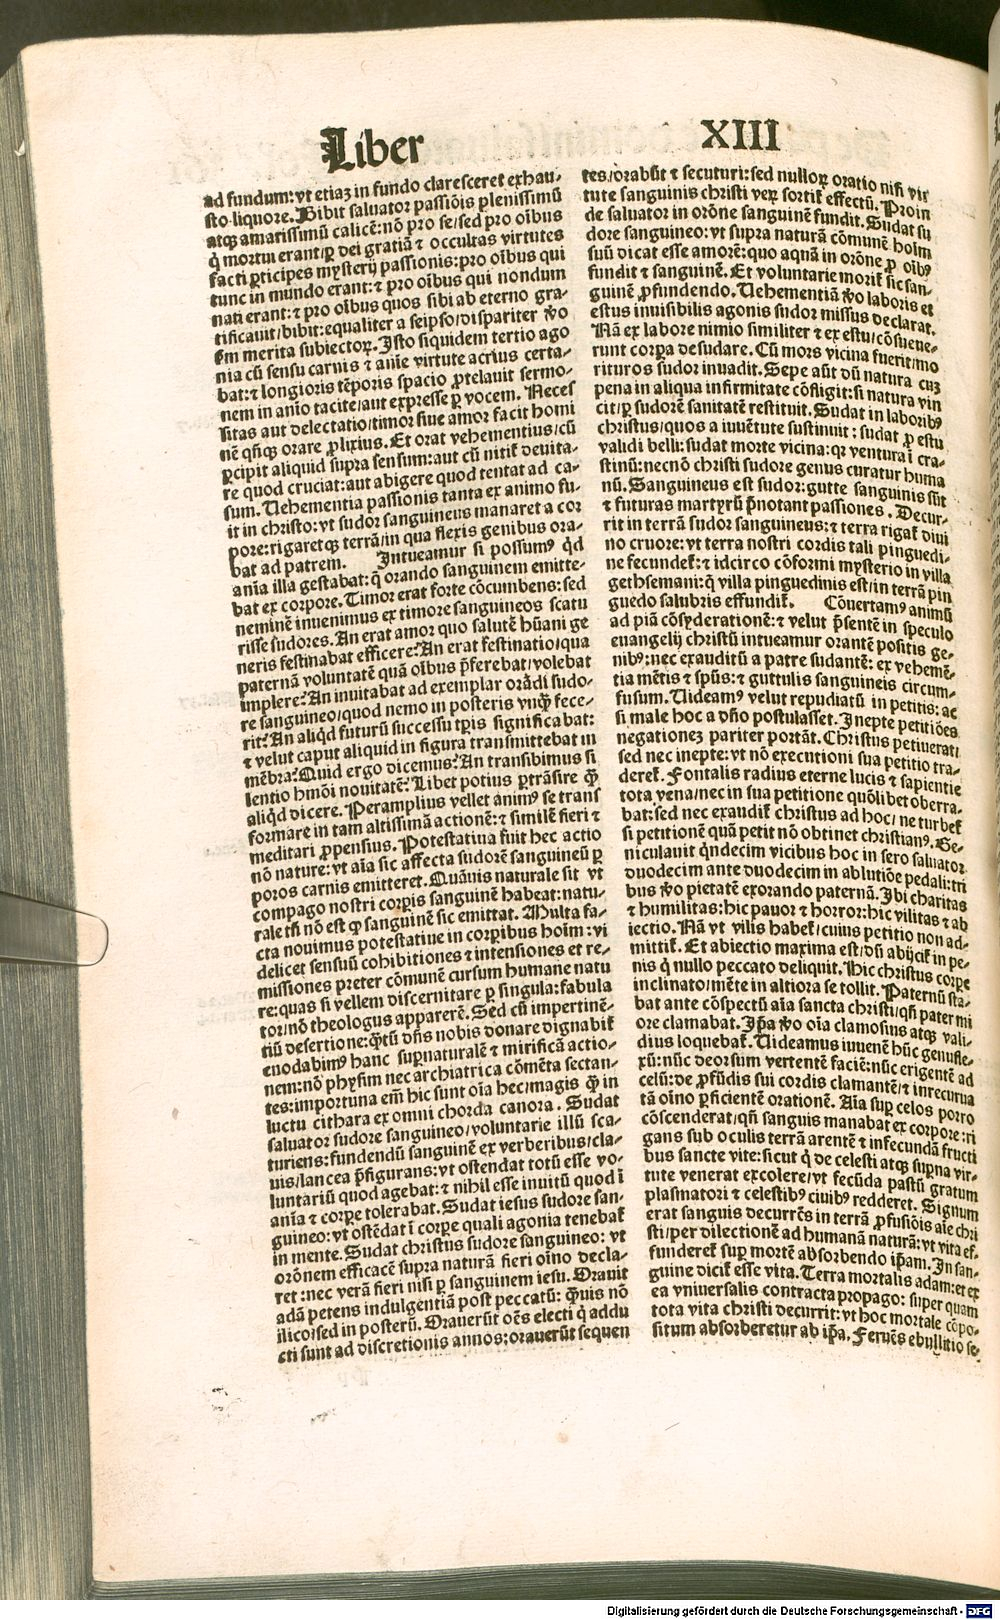 Liber XIII
ad fundum: vt etiaz in fundo claresceret exhau-
sto liquore. Bibit saluator passiōis plenissimū
atqꝫ amarissimū calicē: nō pro se/sed pro oībus
q̇ mortui erant/ꝑ dei gratiā ⁊ occultas virtutes
facti ꝑticipes mysterij passionis: pro oībus qui
tunc in mundo erant: ⁊ pro oībus qui nondum
nati erant: ⁊ pro oībus quos sibi ab eterno gra-
tificauit/bibit: equaliter a seipso/dispariter v̄o
s̄m merita subiectoꝝ. Isto siquidem tertio ago
nia cū sensu carnis ⁊ aīe virtute acrius certa-
bat: ⁊ longioris tēporis spacio ꝓtelauit sermo-
nem in anīo tacite/aut expresse ꝑ vocem. Neces
sitas aut delectatio/timor siue amor facit homi
nē qn̄qꝫ orare ꝓlixius. Et orat vehementius/cū
ꝑcipit aliquid supra sensum: aut cū nitit᷑ deuita-
re quod cruciat: aut abigere quod tentat ad ca-
sum. Uehementia passionis tanta ex animo fu-
it in christo: vt sudor sanguineus manaret a cor
pore: rigaretqꝫ terrā/in qua flexis genibus ora-
bat ad patrem. Intueamur si possumꝰ q̇d
anīa illa gestabat: q̄ orando sanguinem emitte-
bat ex corpore. Timor erat forte cōcumbens: sed
neminē inuenimus ex timore sanguineos scatu
risse sudores. An erat amor quo salutē hūani ge
neris festinabat efficere? An erat festinatio/qua
paternā voluntatē quā oībus p̄ferebat/volebat
implere? An inuitabat ad exemplar orādi sudo-
re sanguineo/quod nemo in posteris vnqꝫ fece-
rit? An aliq̇d futurū successu tꝑis significabat:
⁊ velut caput aliquid in figura transmittebat in
mēbra? Quid ergo dicemus? An transibimus si
lentio hmōi nouitatē? Libet potius ꝑtrāsire q̄
aliq̇d dicere. Peramplius vellet animꝰ se trans
formare in tam altissimā actionē: ⁊ similē fieri ⁊
meditari ꝓpensius. Potestatiua fuit hec actio
nō nature: vt aīa sic affecta sudorē sanguineū ꝑ
poros carnis emitteret. Quāuis naturale sit vt
compago nostri corꝑis sanguinē habeat: natu-
rale tn̄ nō est ꝙ sanguinē sic emittat. Multa fa-
cta nouimus potestatiue in corꝑibus hoīm: vi
delicet sensuū cohibitiones ⁊ intensiones et re-
missiones preter cōmunē cursum humane natu
re: quas si vellem discernitare ꝑ singula: fabula
tor/nō theologus apparerē. Sed cū impertinē-
tiū desertione: q̄tū dn̄s nobis donare dignabit᷑
enodabimꝰ hanc suꝑnaturalē ⁊ mirificā actio-
nem: nō phyſim nec archiatrica cōmēta sectan-
tes: importuna em̄ hic sunt oīa hec/magis q̄ in
luctu cithara ex omni chorda canora. Sudat
saluator sudore sanguineo/voluntarie illū sca-
turiens: fundendū sanguinē ex verberibus/cla-
uis/lancea p̄figurans: vt ostendat totū esse vo-
luntariū quod agebat: ⁊ nihil esse inuitū quod ī
anīa ⁊ corꝑe tolerabat. Sudat iesus sudore san-
guineo: vt ostēdat ī corꝑe quali agonia tenebat᷑
in mente. Sudat christus sudore sanguineo: vt
orōnem efficacē supra naturā fieri oīno decla-
ret: nec verā fieri nisi ꝑ sanguinem iesu. Orauit
adā petens indulgentiā post peccatū: q̄uis nō
ilico/sed in posterū. Orauerūt oēs electi q̇ addu
cti sunt ad discretionis annos: orauerūt sequen
tes/orabūt ⁊ secuturi: sed nulloꝝ oratio nisi vir
tute sanguinis christi veꝝ sortit᷑ effectū. Proin
de saluator in orōne sanguinē fundit. Sudat su
dore sanguineo: vt supra naturā cōmunē hoīm
suū dicat esse amorē: quo aquā in orōne ꝓ oībꝰ
fundit ⁊ sanguinē. Et voluntarie morit᷑ sic san-
guinē ꝓfundendo. Uehementiā v̄o laboris et
estus inuisibilis agonis sudor missus declarat.
Nā ex labore nimio similiter ⁊ ex estu/cōsueue-
runt corꝑa desudare. Cū mors vicina fuerit/mo
rituros sudor inuadit. Sepe aūt dū natura cuz
pena in aliqua infirmitate cōfligit: si natura vin
cit/ꝑ sudorē sanitatē restituit. Sudat in laboribꝰ
christus/quos a iuuētute sustinuit: sudat ꝓ estu
validi belli: sudat morte vicina: qꝛ ventura ī cra-
stinū: necnō christi sudore genus curatur huma
nū. Sanguineus est sudor: gutte sanguinis sūt
⁊ futuras martyrū p̄notant passiones. Decur-
rit in terrā sudor sanguineus: ⁊ terra rigat᷑ diui
no cruore: vt terra nostri cordis tali pinguedi-
ne fecundet᷑: ⁊ idcirco cōformi mysterio in villa
gethsemani: q̄ villa pinguedinis est/in terrā pin
guedo salubris effundit᷑. Cōuertamꝰ animū
ad piā cōsyderationē: ⁊ velut p̄sentē in speculo
euangelij christū intueamur orantē positis ge-
nibꝰ: nec exauditū a patre sudantē: ex vehemē-
tia mētis ⁊ spūs: ⁊ guttulis sanguineis circum-
fusum. Uideamꝰ velut repudiatū in petitis: ac
si male hoc a dn̄o postulasset. Inepte petitiōes
negationez pariter portāt. Christus petiuerat/
sed nec inepte: vt nō executioni sua petitio tra-
deret᷑. Fontalis radius eterne lucis ⁊ sapientie
tota vena/nec in sua petitione quōlibet oberra-
bat: sed nec exaudit᷑ christus ad hoc/ne turbet᷑
si petitionē quā petit nō obtinet christianꝰ. Ge-
niculauit q̇ndecim vicibus hoc in sero saluator
duodecim ante duodecim in ablutiōe pedali: tri
bus v̄o pietatē exorando paternā. Ibi charitas
⁊ humilitas: hic pauor ⁊ horror: hic vilitas ⁊ ab
iectio. Nā vt vilis habet᷑/cuius petitio non ad-
mittit᷑. Et abiectio maxima est/dū abijcit᷑ in pe-
nis q̇ nullo peccato deliquit. Hic christus corꝑe
inclinato/mēte in altiora se tollit. Paternū sta-
bat ante cōspectū aīa sancta christi/qn̄ pater mi
ore clamabat. Ip̄a v̄o oīa clamosius atqꝫ vali-
dius loquebat᷑. Uideamus iuuenē hūc genufle-
xū: nūc deorsum vertentē faciē: nūc erigentē ad
celū: de ꝓfūdis sui cordis clamantē/⁊ inrecurua
tā oīno ꝑficientē orationē. Aīa suꝑ celos porro
cōscenderat/qn̄ sanguis manabat ex corpore: ri
gans sub oculis terrā arentē ⁊ infecundā fructi
bus sancte vite: sicut q̇ de celesti atqꝫ suꝑna vir-
tute venerat excolere/vt fecūda pastū gratum
plasmatori ⁊ celestibꝰ ciuibꝰ redderet. Signum
erat sanguis decurrēs in terrā ꝓfusiōis aīe chri
sti/per dilectionē ad humanā naturā: vt vita ef-
funderet᷑ suꝑ mortē absorbendo ip̄am. In san-
guine dicit᷑ esse vita. Terra mortalis adam: et ex
ea vniuersalis contracta propago: super quam
tota vita christi decurrit: vt hoc mortale cōpo-
situm absorberetur ab ip̄a. Feruēs ebullitio se-
Digitalisierung gefördert durch die Deutsche Forschungsgemeinschaft - DFG